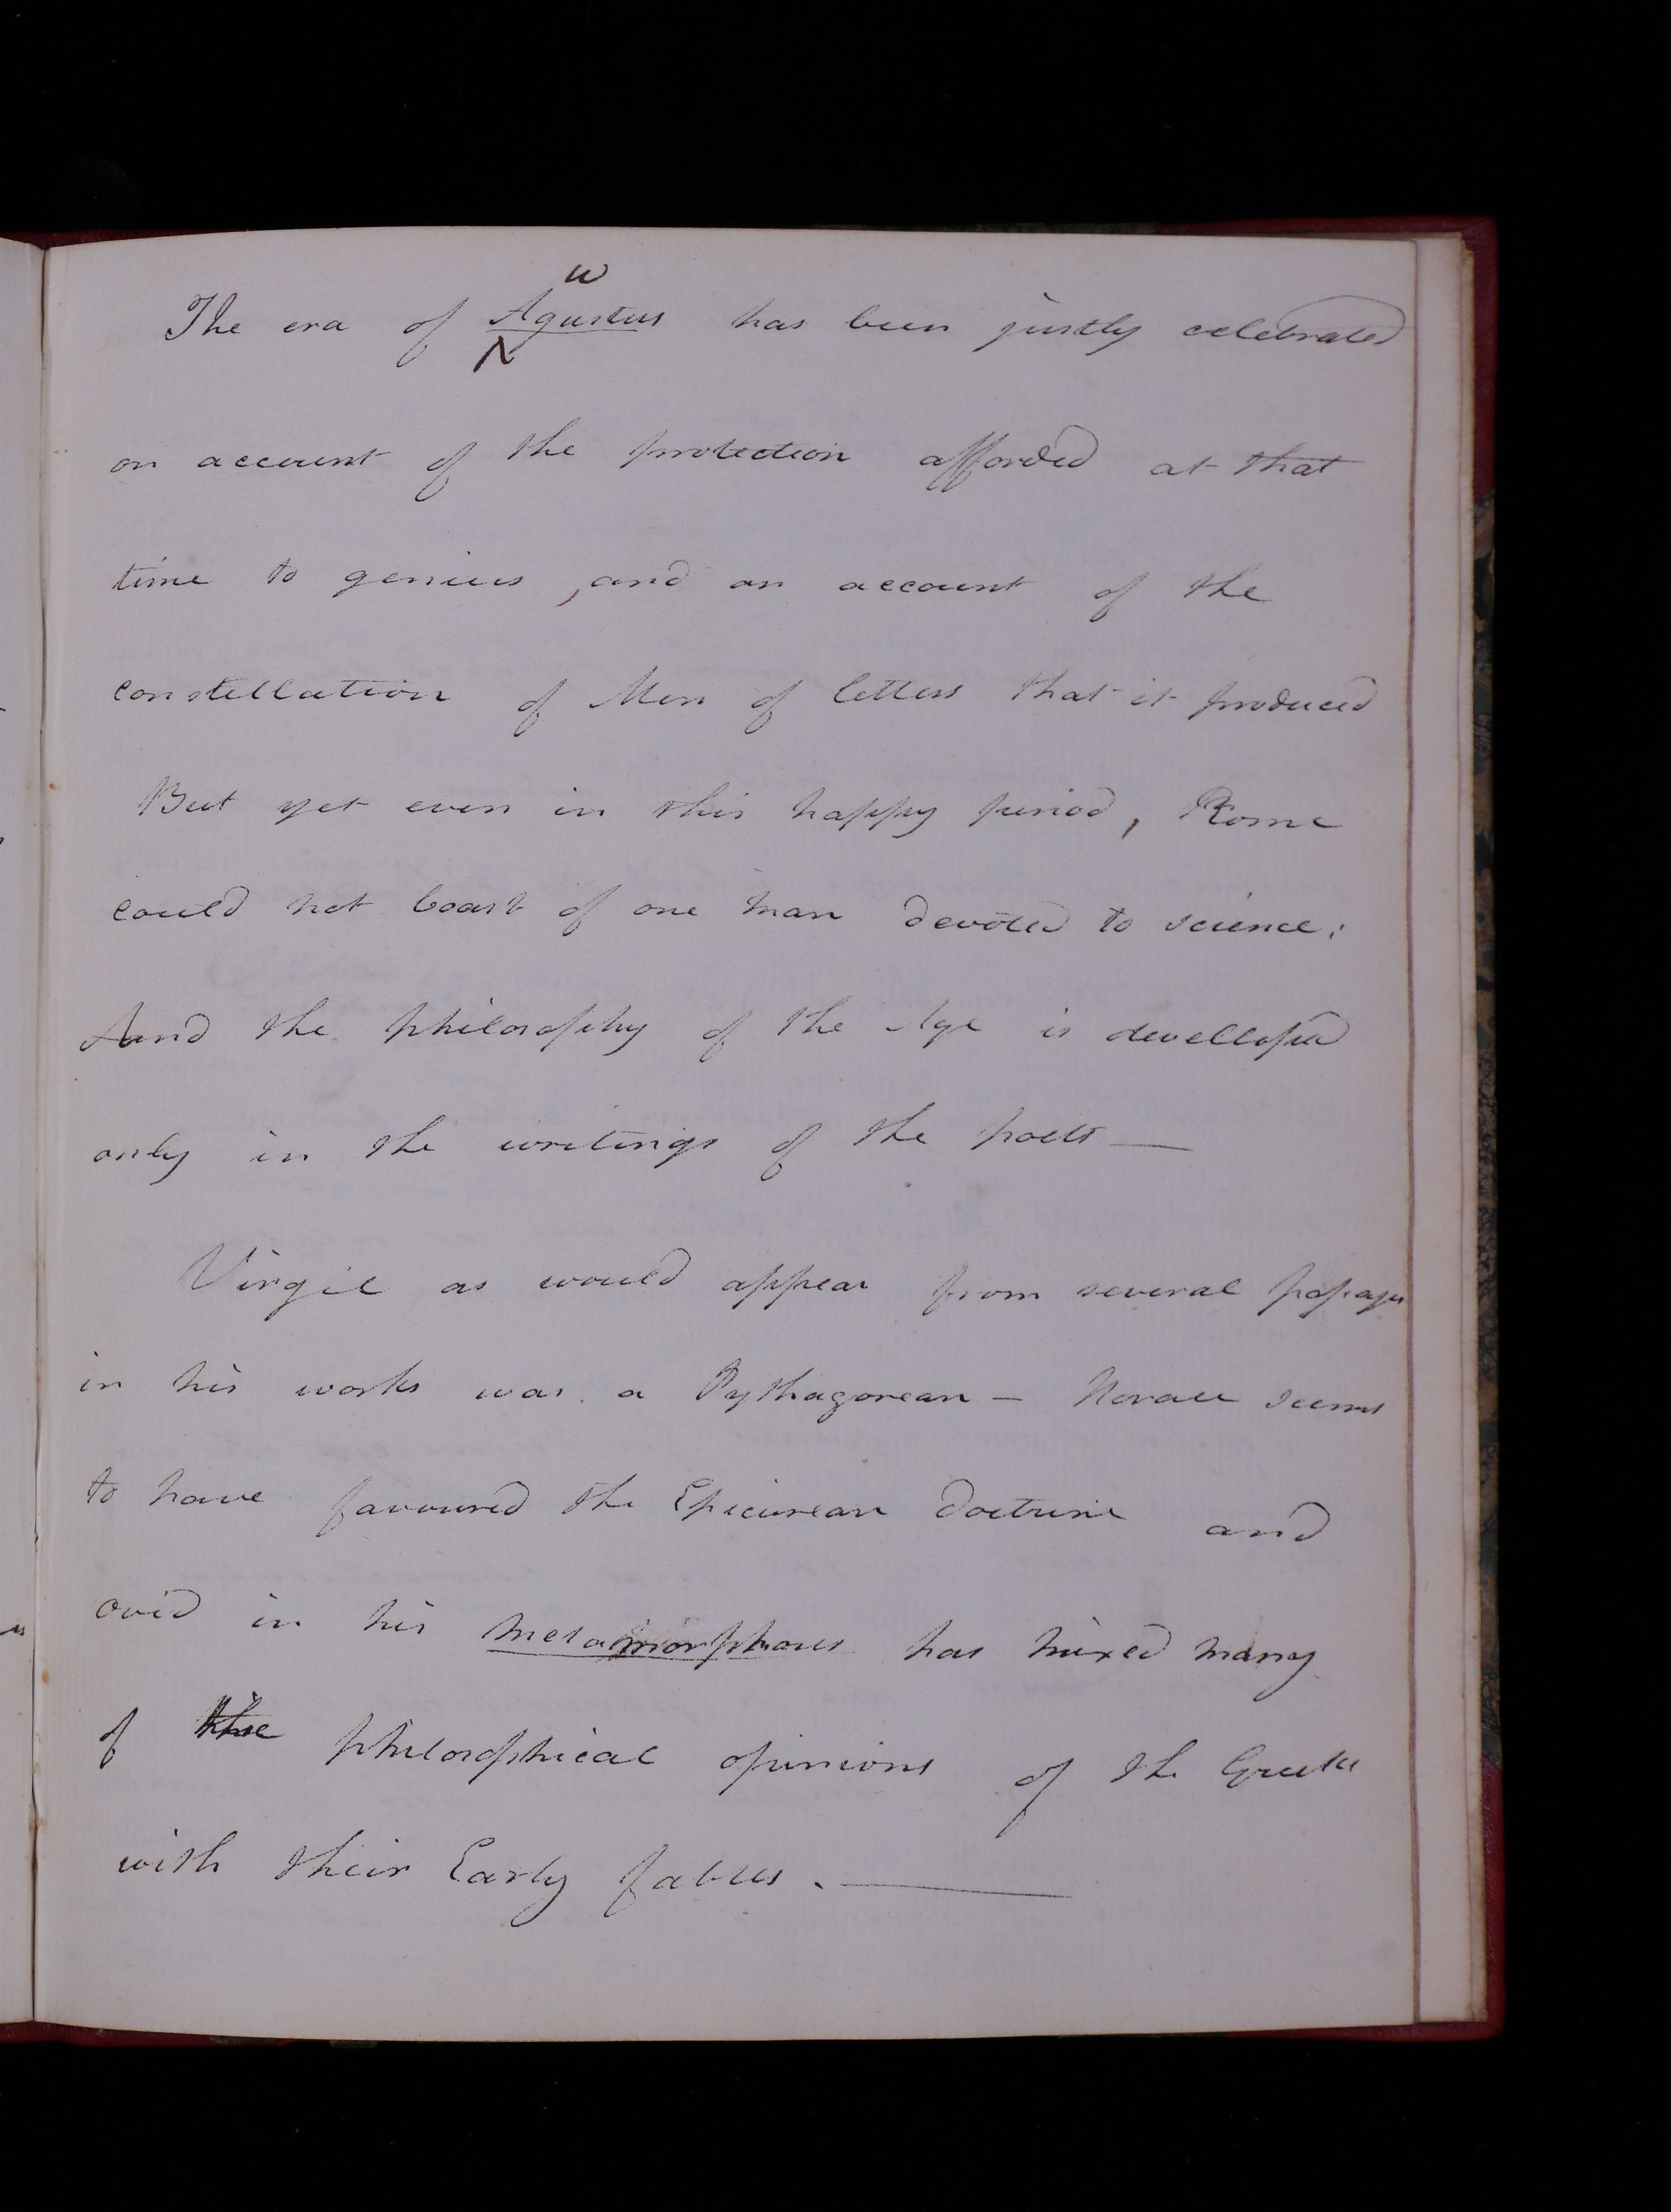 The era of Augustus has been justly celebrated
on account of the protection afforded at that
time to genius, and on account of the
constellation of Men of letters that it produced
But yet even in this happy period, Rome
could not boast of one man devoted to science:
And the philosophy of the Age is developped
only in the writings of the poets —
Virgil as would appear from several passages
in his works was a Pythagorean — Horace seems
to have favoured the Epicurean doctrine and
ovid in his metamorphoses has mixed many
of the philosophical opinions of the Greeks
with their Early fables. —